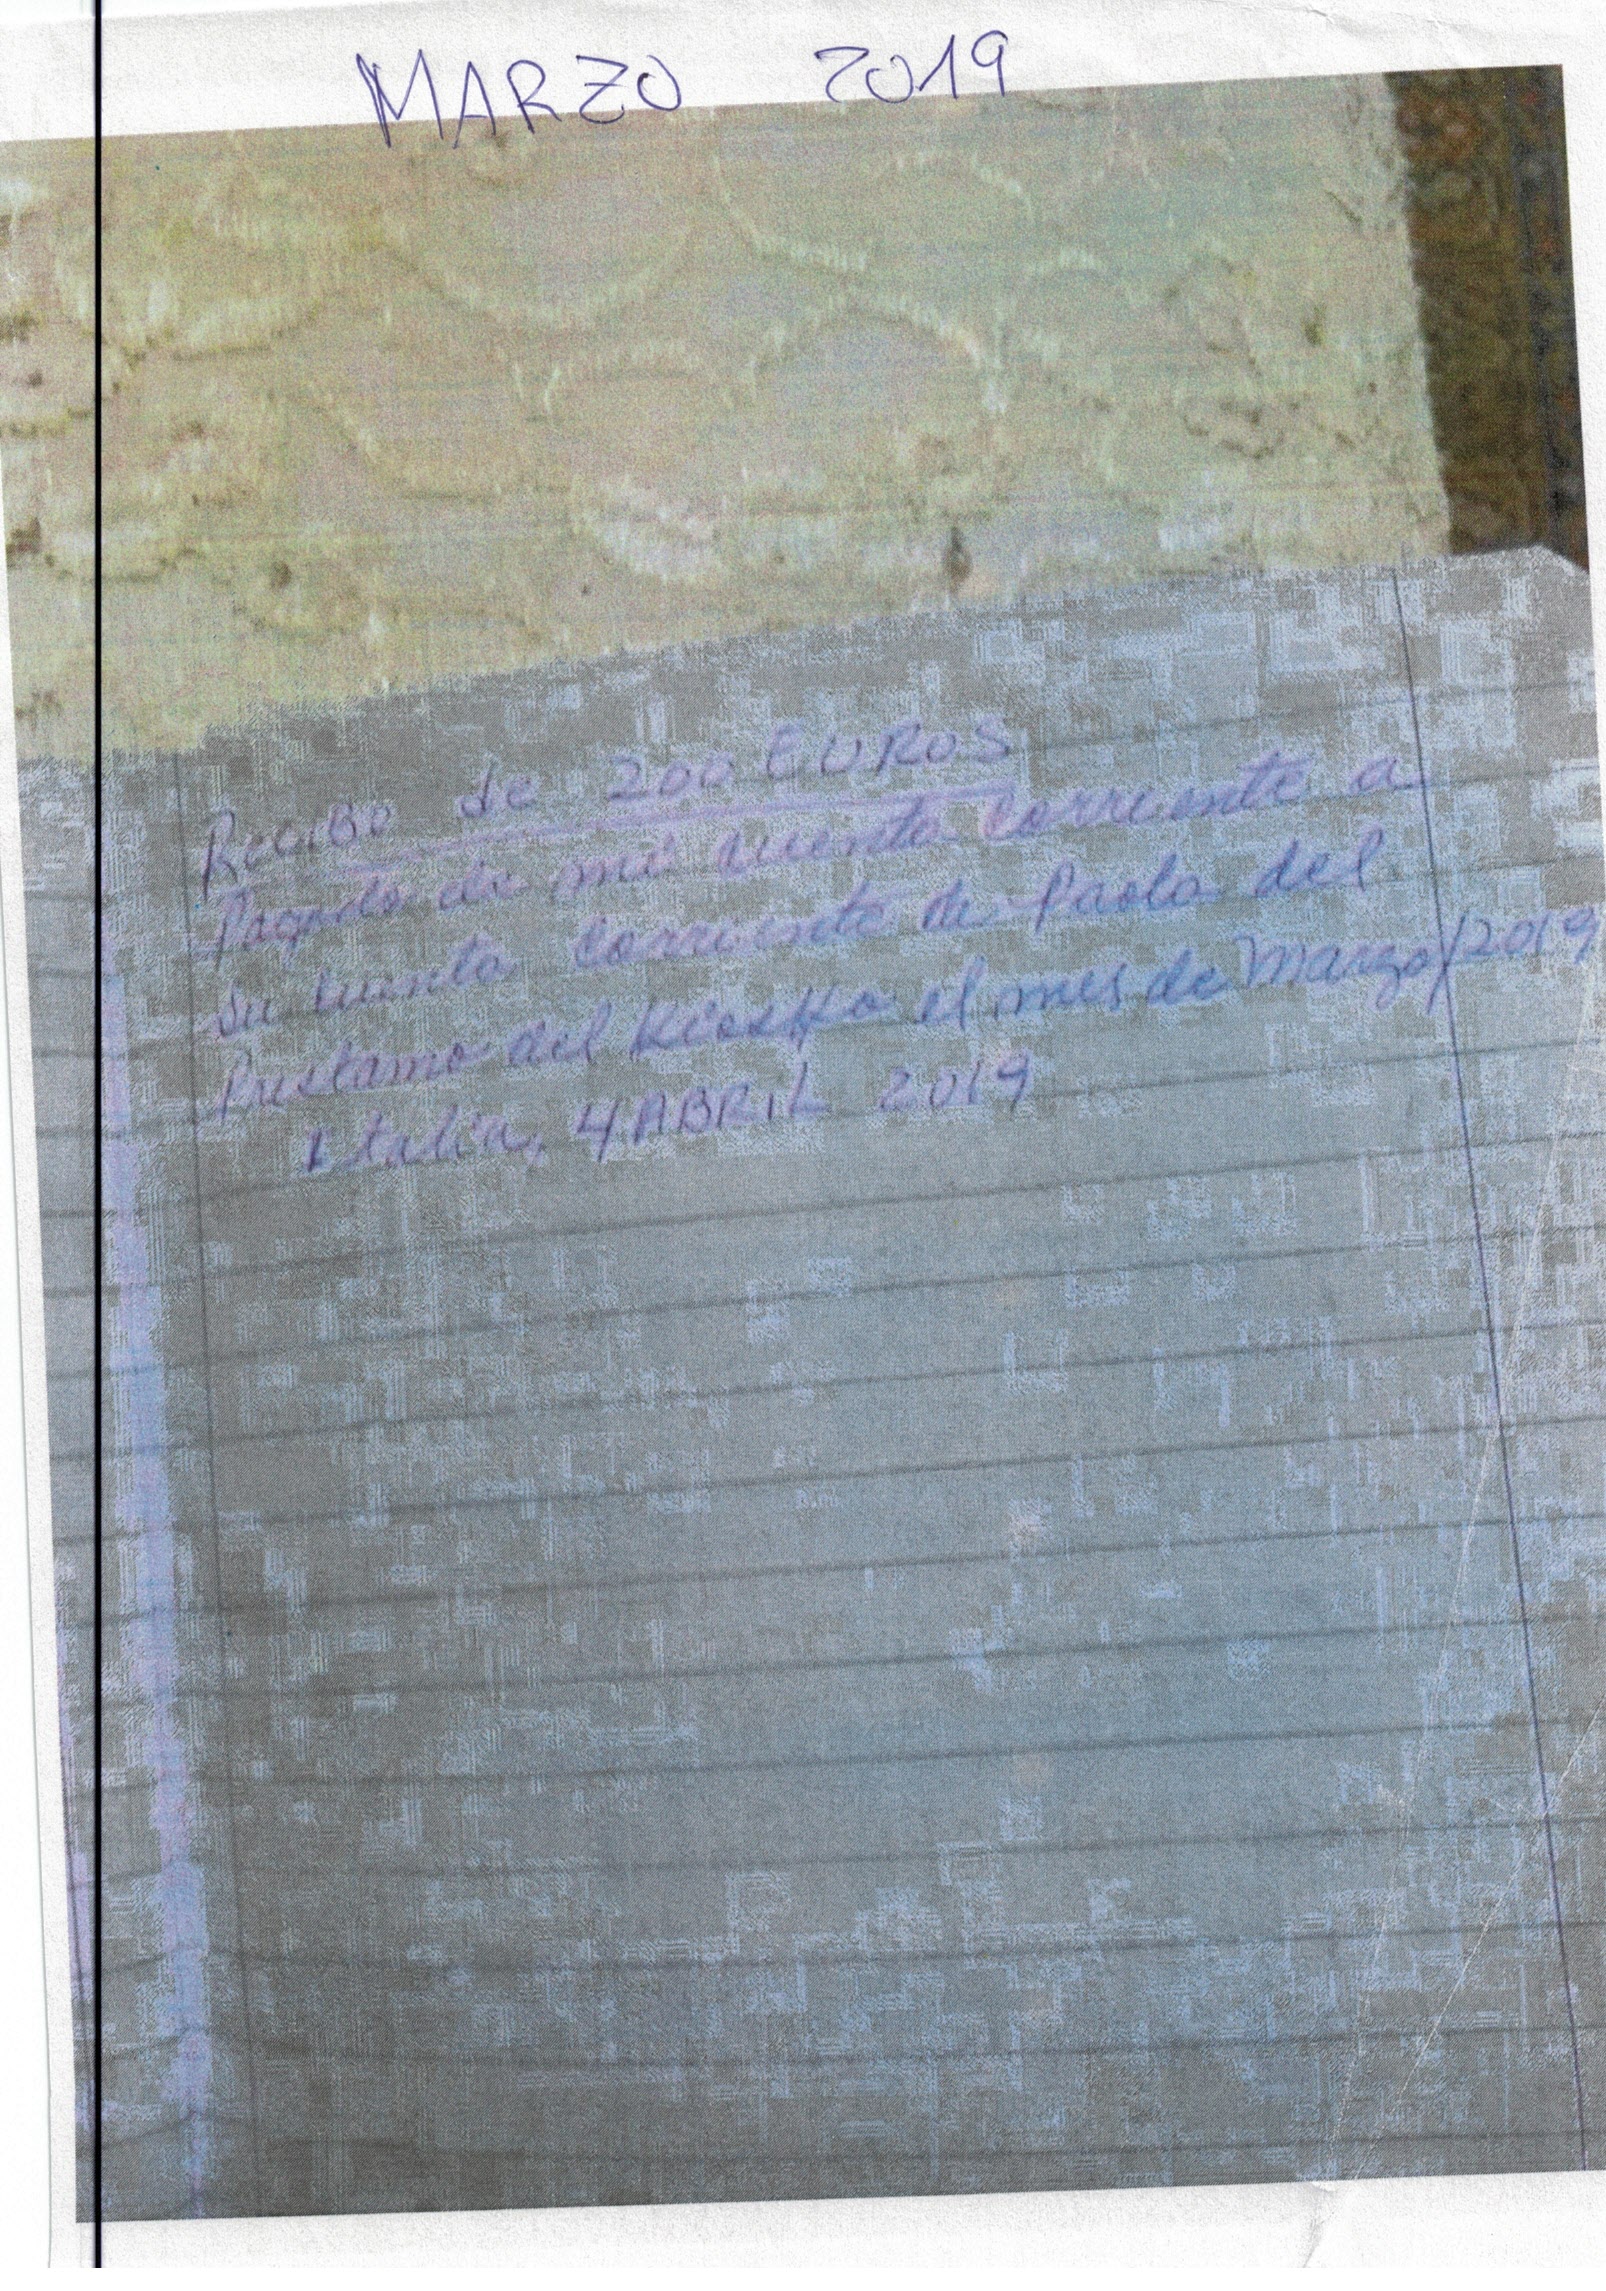 MARZO 2019
Recibo de 200 EUROS
Pagado de mi cuenta corriente a
su cuenta corriente de Paola del
Prestamo del Kiosko el mes de Marzo/2019
Italia, 4 ABRIL 2019